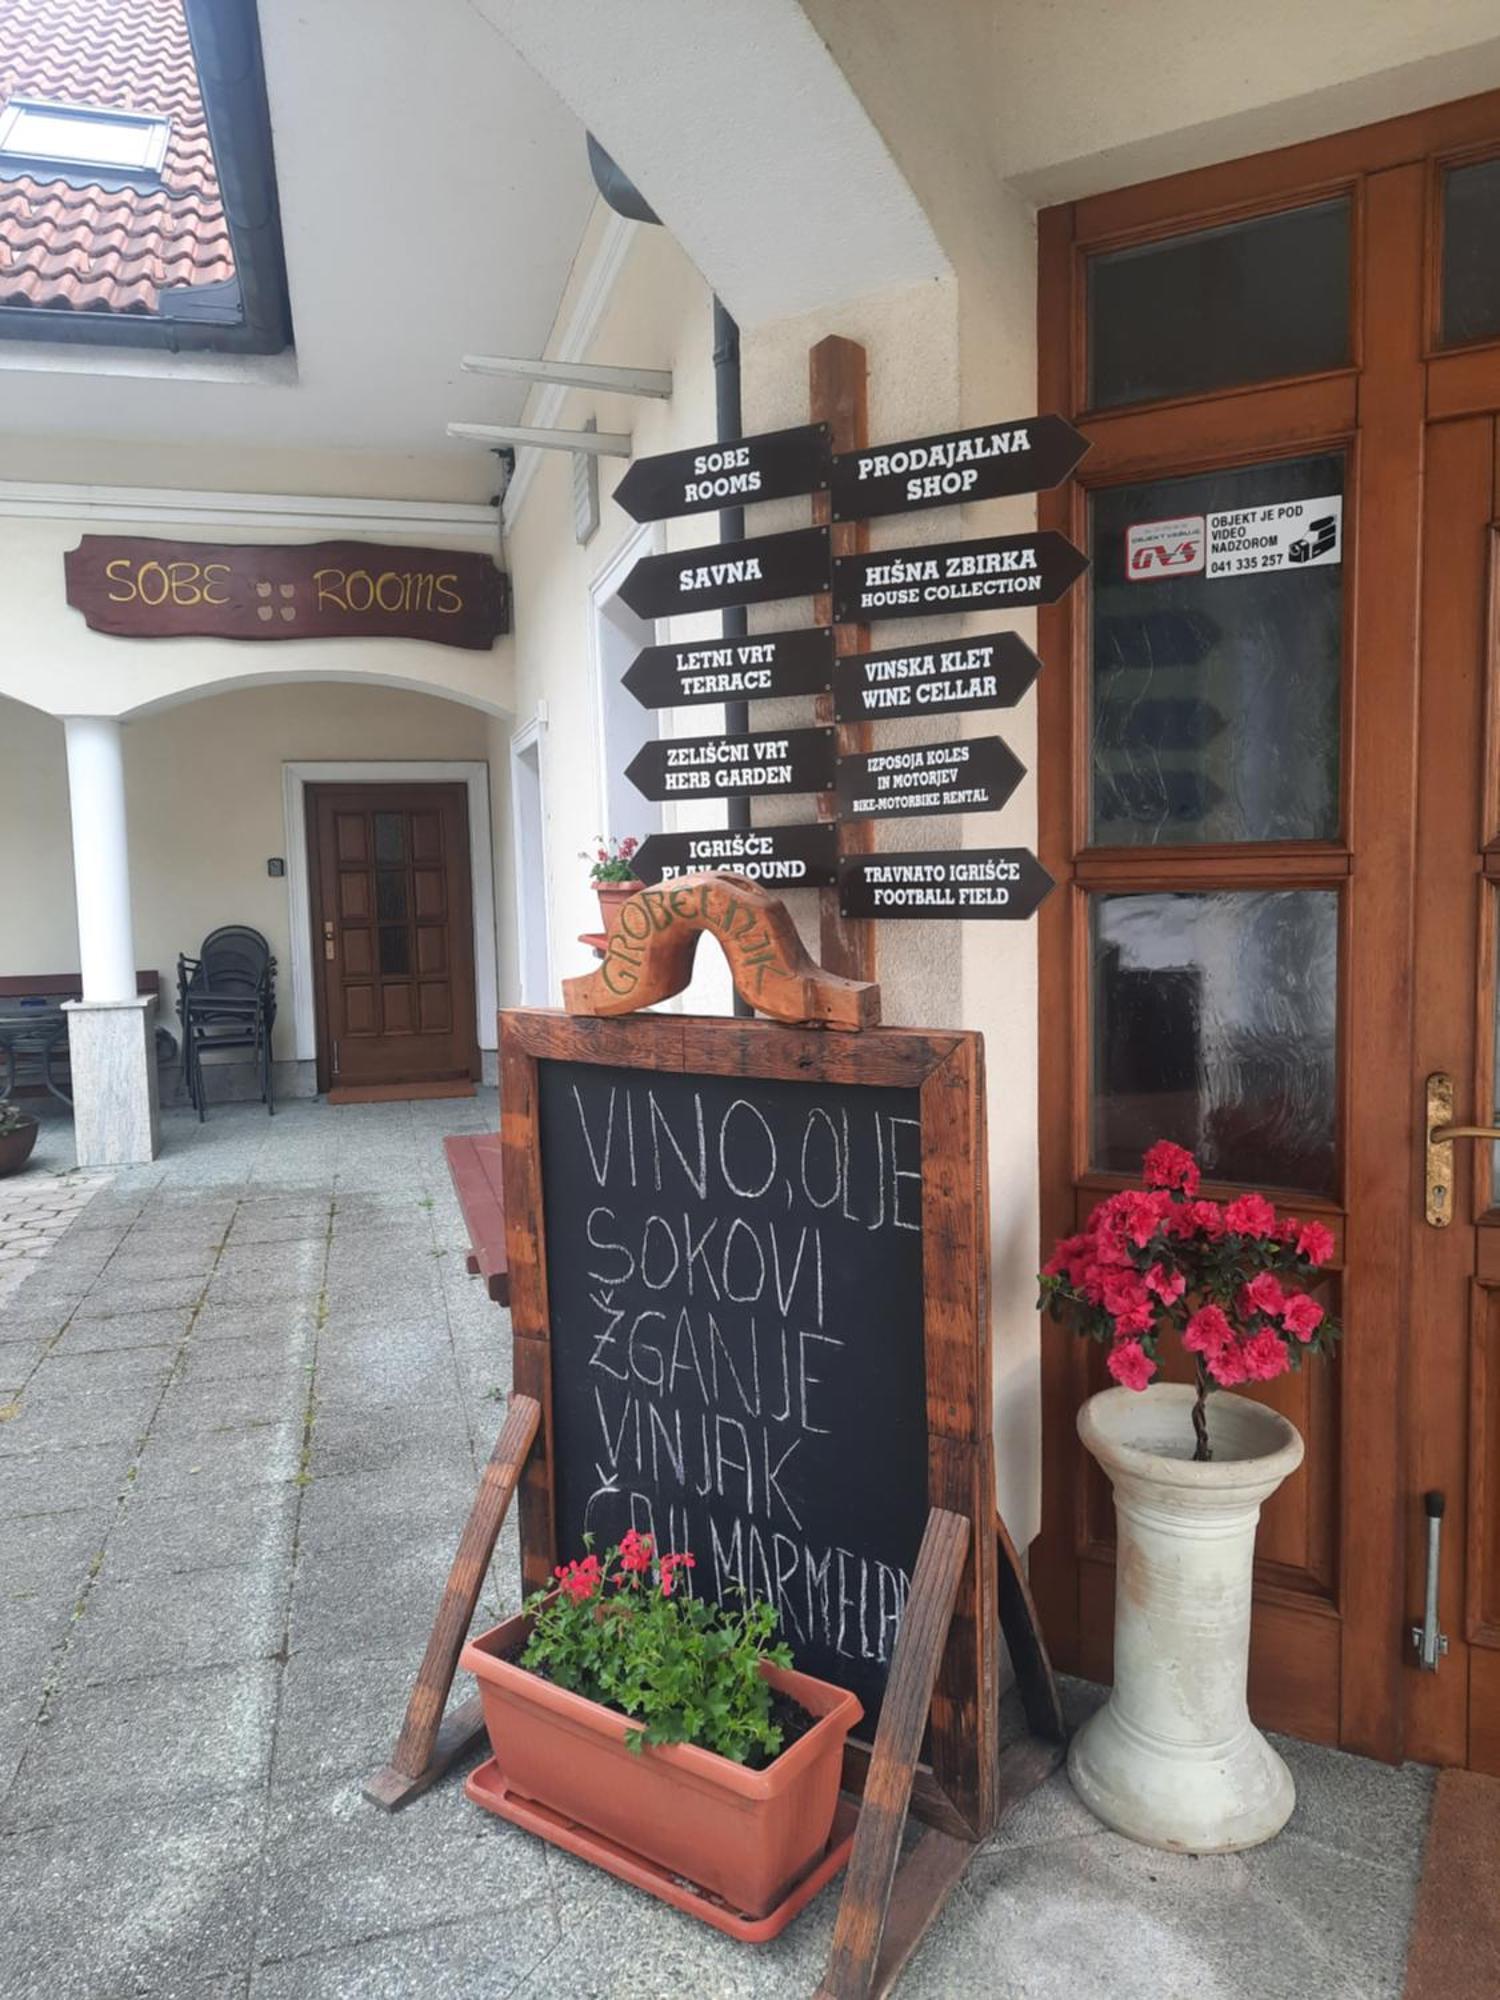 SOBE ROOMS
SOBE
ROOMS
PRODAJALNA
SHOP
SAVNA
HIŠNA ZBIRKA
HOUSE COLLECTION
LETNI VRT
TERRACE
VINSKA KLET
WINE CELLAR
ZELIŠČNI VRT
HERB GARDEN
IZPOSOJA KOLES
IN MOTORJEV
BIKE-MOTORBIKE RENTAL
IGRIŠČE
PLAYGROUND
TRAVNATO IGRIŠČE
FOOTBALL FIELD
OBJEKT VARUJE
OBJEKT JE POD
VIDEO
NADZOROM
041 335 257
GROBELNIK
VINO, OLJE
SOKOVI
ŽGANJE
VINJAK
MARMELA